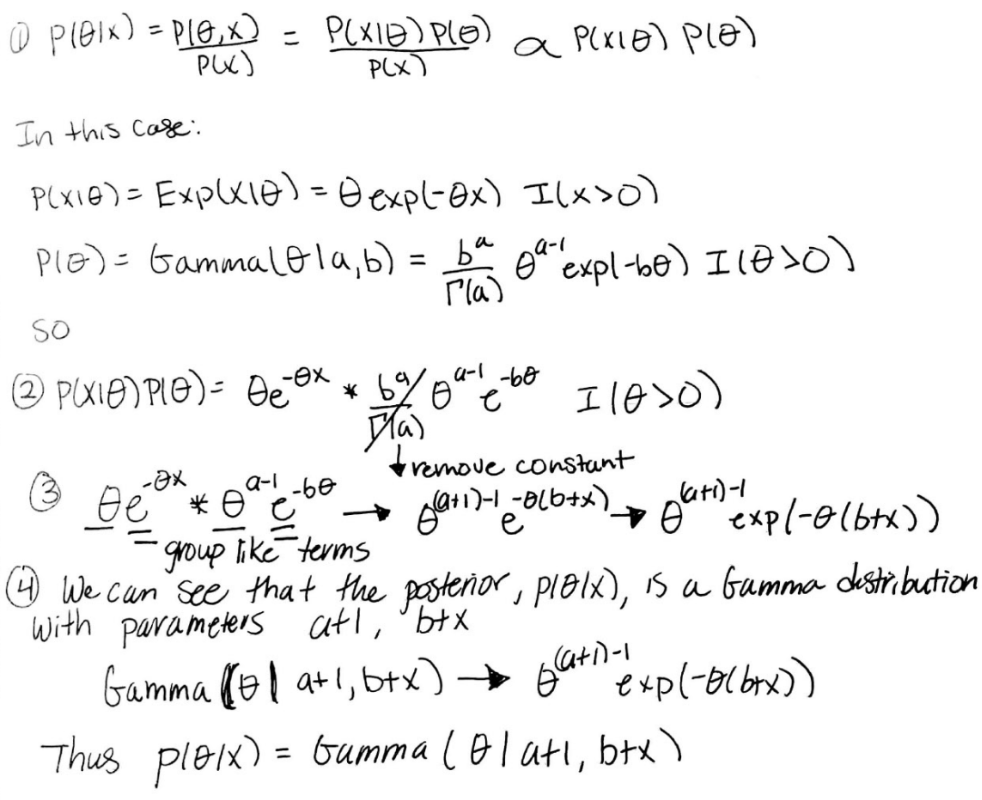 ① P(θ|x) = P(θ,x)/P(x) = P(x|θ) P(θ)/P(x) α P(x|θ) P(θ)
In this case:
P(x|θ) = Exp(x|θ) = θ exp(-θx) I(x>0)
P(θ) = Gamma(θ|a,b) = b^a/Γ(a) θ^(a-1) exp(-bθ) I(θ>0)
so
② P(x|θ)P(θ) = θe^(-θx) * b^a/Γ(a) θ^(a-1) e^(-bθ) I(θ>0)
↓ remove constant
③ θe^(-θx) * θ^(a-1) e^(-bθ) → θ^((a+1)-1) e^(-θ(b+x)) → θ^((a+1)-1) exp(-θ(b+x))
group like terms
④ We can see that the posterior, p(θ|x), is a Gamma distribution
with parameters a+1, b+x
Gamma (θ | a+1, b+x) → θ^((a+1)-1) exp(-θ(b+x))
Thus p(θ|x) = Gamma (θ | a+1, b+x)